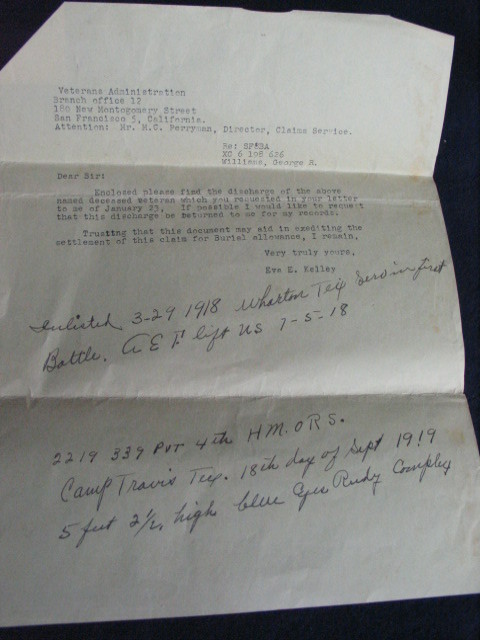 Veterans Administration
Branch office 12
180 New Montgomery Street
San Francisco 5, California.
Attention: Mr. H.C. Perryman, Director, Claims Service.
Re:
XC 6 198 626
Williams, George H.
Dear Sir:
Enclosed please find the discharge of the above
named deceased veteran which you requested in your letter
to me of January 23, If possible I would like to request
that this discharge be returned to me for my records.
Trusting that this document may aid in exediting the
settlement of this claim for Burial allowance, I remain,
Very truly yours,
Eva E. Kelley
Enlisted 3-29 1918 Wharton Tex Serv in first
Battle. A E F left US 7-5-18
2219 339 Pvt 4th H.M.O R S.
Camp Travis Tex. 18th day of Sept 1919
5 feet 2 1/2 high blue Eyes Rudy Complex